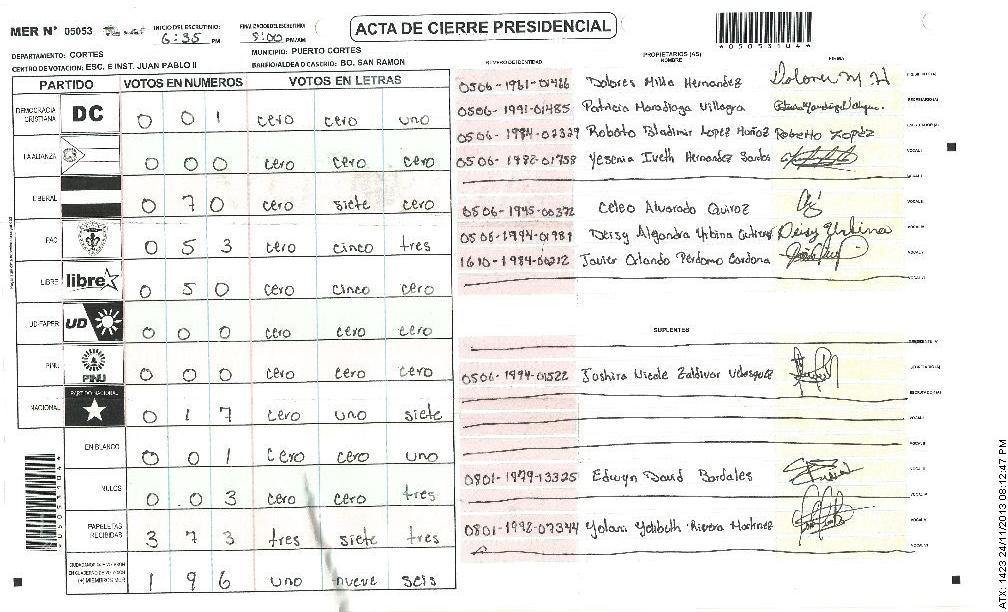 MER Nº 05053
INICIO DEL ESCRUTINIO
6:35 PM
FINALIZACION DEL ESCRUTINIO
8:00 PM/AM
ACTA DE CIERRE PRESIDENCIAL
*05053104*
DEPARTAMENTO: CORTES
MUNICIPIO: PUERTO CORTES
CENTRO DE VOTACION: ESC. E INST. JUAN PABLO II
BARRIO/ALDEA O CASERIO: BO. SAN RAMON
PARTIDO VOTOS EN NUMEROS VOTOS EN LETRAS
DEMOCRACIA CRISTIANA DC 0 0 1 cero cero uno
LA ALIANZA 0 0 0 cero cero cero
LIBERAL 0 7 0 cero siete cero
PAC 0 5 3 cero cinco tres
LIBRE libre 0 5 0 cero cinco cero
UD-FAPER UD 0 0 0 cero cero cero
PINU PINU 0 0 0 cero cero cero
NACIONAL PARTIDO NACIONAL 0 1 7 cero uno siete
EN BLANCO 0 0 1 cero cero uno
NULOS 0 0 3 cero cero tres
PAPELETAS RECIBIDAS 3 7 3 tres siete tres
(+) MIEMBROS MER 1 9 6 uno nueve seis
NUMERO DE IDENTIDAD PROPIETARIOS (AS) NOMBRE FIRMA
0506-1961-01466 Dolores Milla Hernandez Dolores M H
0506-1991-01485 Patricia Maradiaga Villagra
0506-1984-02329 Roberto Bladimir Lopez Muñoz Roberto Lopez
0506-1982-01758 Yesenia Iveth Hernandez Santos VOCAL I
0506-1945-00372 Celeo Alvarado Quiroz
0506-1994-01981 Deisy Alejandra Urbina Gutierrez Deisy Urbina
1610-1984-00212 Javier Orlando Perdomo Cardona
SUPLENTES
0506-1994-01522 Joshira Nicole Zaldivar Velasquez
0801-1979-13325 Edwyn David Bardales
0801-1992-07344 Yolani Yelibeth Rivera Martinez
ATX: 1423 24/11/2013 08:12:47 PM